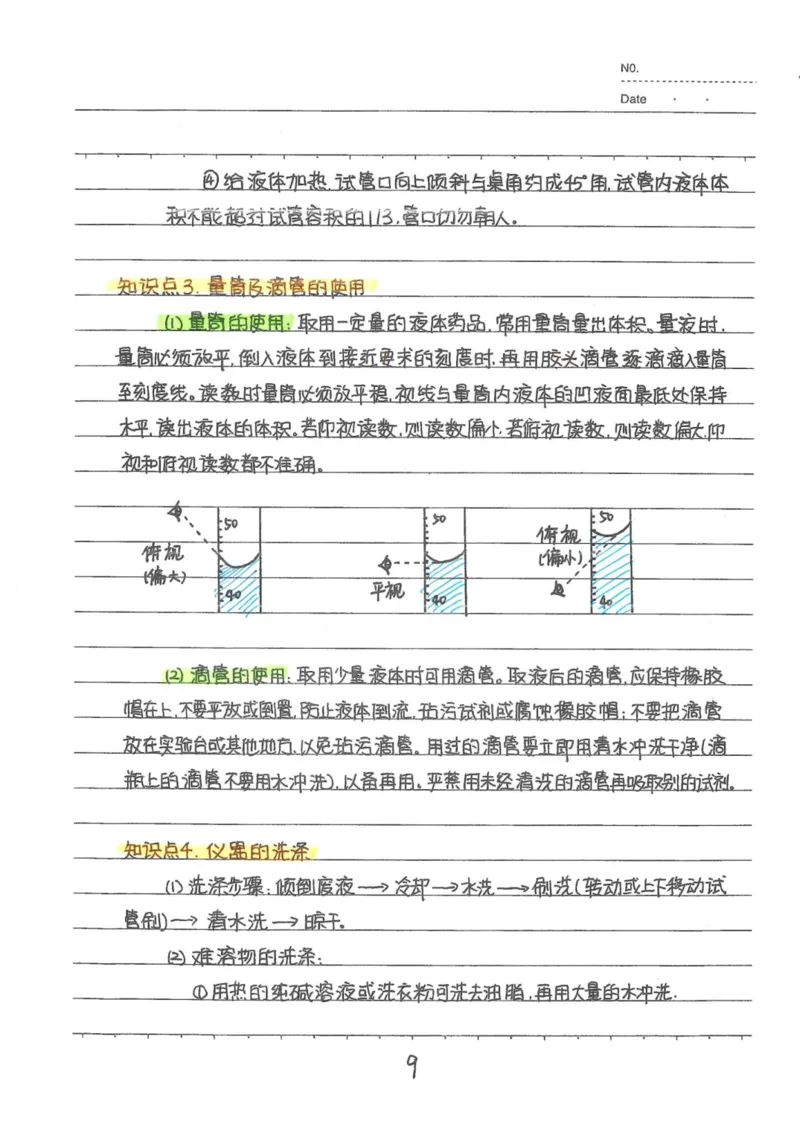 NO.
Date · ·
④给液体加热,试管口向上倾斜与桌角约成45°角,试管内液体体
积不能超过试管容积的1/3,管口切勿朝人。
知识点3.量筒及滴管的使用
(1)量筒的使用:取用一定量的液体药品,常用量筒量出体积。量液时,
量筒必须放平,倒入液体到接近要求的刻度时,再用胶头滴管逐滴滴入量筒
至刻度线。读数时量筒必须放平稳,视线与量筒内液体的凹液面最低处保持
水平,读出液体的体积。若仰视读数,则读数偏小,若俯视读数,则读数偏大,仰
视和俯视读数都不准确。
50
50
50
俯视
(偏大)
平视
俯视
(偏小)
40
40
40
(2)滴管的使用:取用少量液体时可用滴管。取液后的滴管,应保持橡胶
帽在上,不要平放或倒置,防止液体倒流,玷污试剂或腐蚀橡胶帽;不要把滴管
放在实验台或其他地方,以免玷污滴管。用过的滴管要立即用清水冲洗干净(滴
瓶上的滴管不要用水冲洗),以备再用。严禁用未经清洗的滴管再吸取别的试剂。
知识点4.仪器的洗涤
(1)洗涤步骤:倾倒废液→冷却→水洗→刷洗(转动或上下移动试
管刷)→清水洗→晾干。
(2)难溶物的洗涤:
①用热的纯碱溶液或洗衣粉可洗去油脂,再用大量的水冲洗.
9